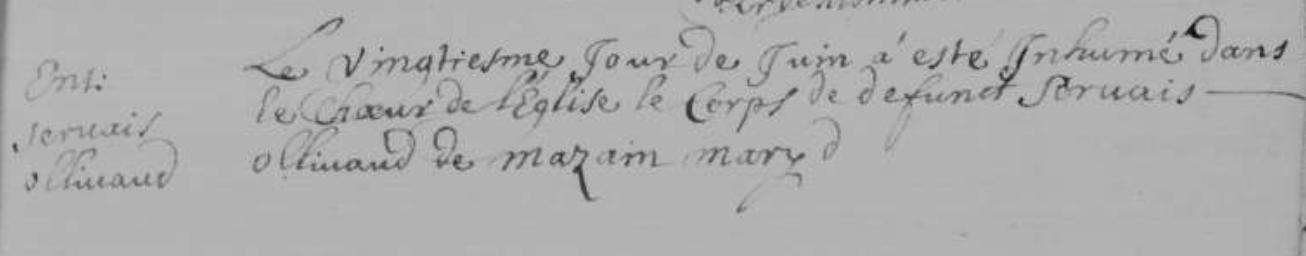 Ent:
servais
ollivaud
Le vingtiesme Jour de Juin a esté Inhumé dans
le Chœur de l'Église le Corps de defunct Servais
ollivaud de mazain